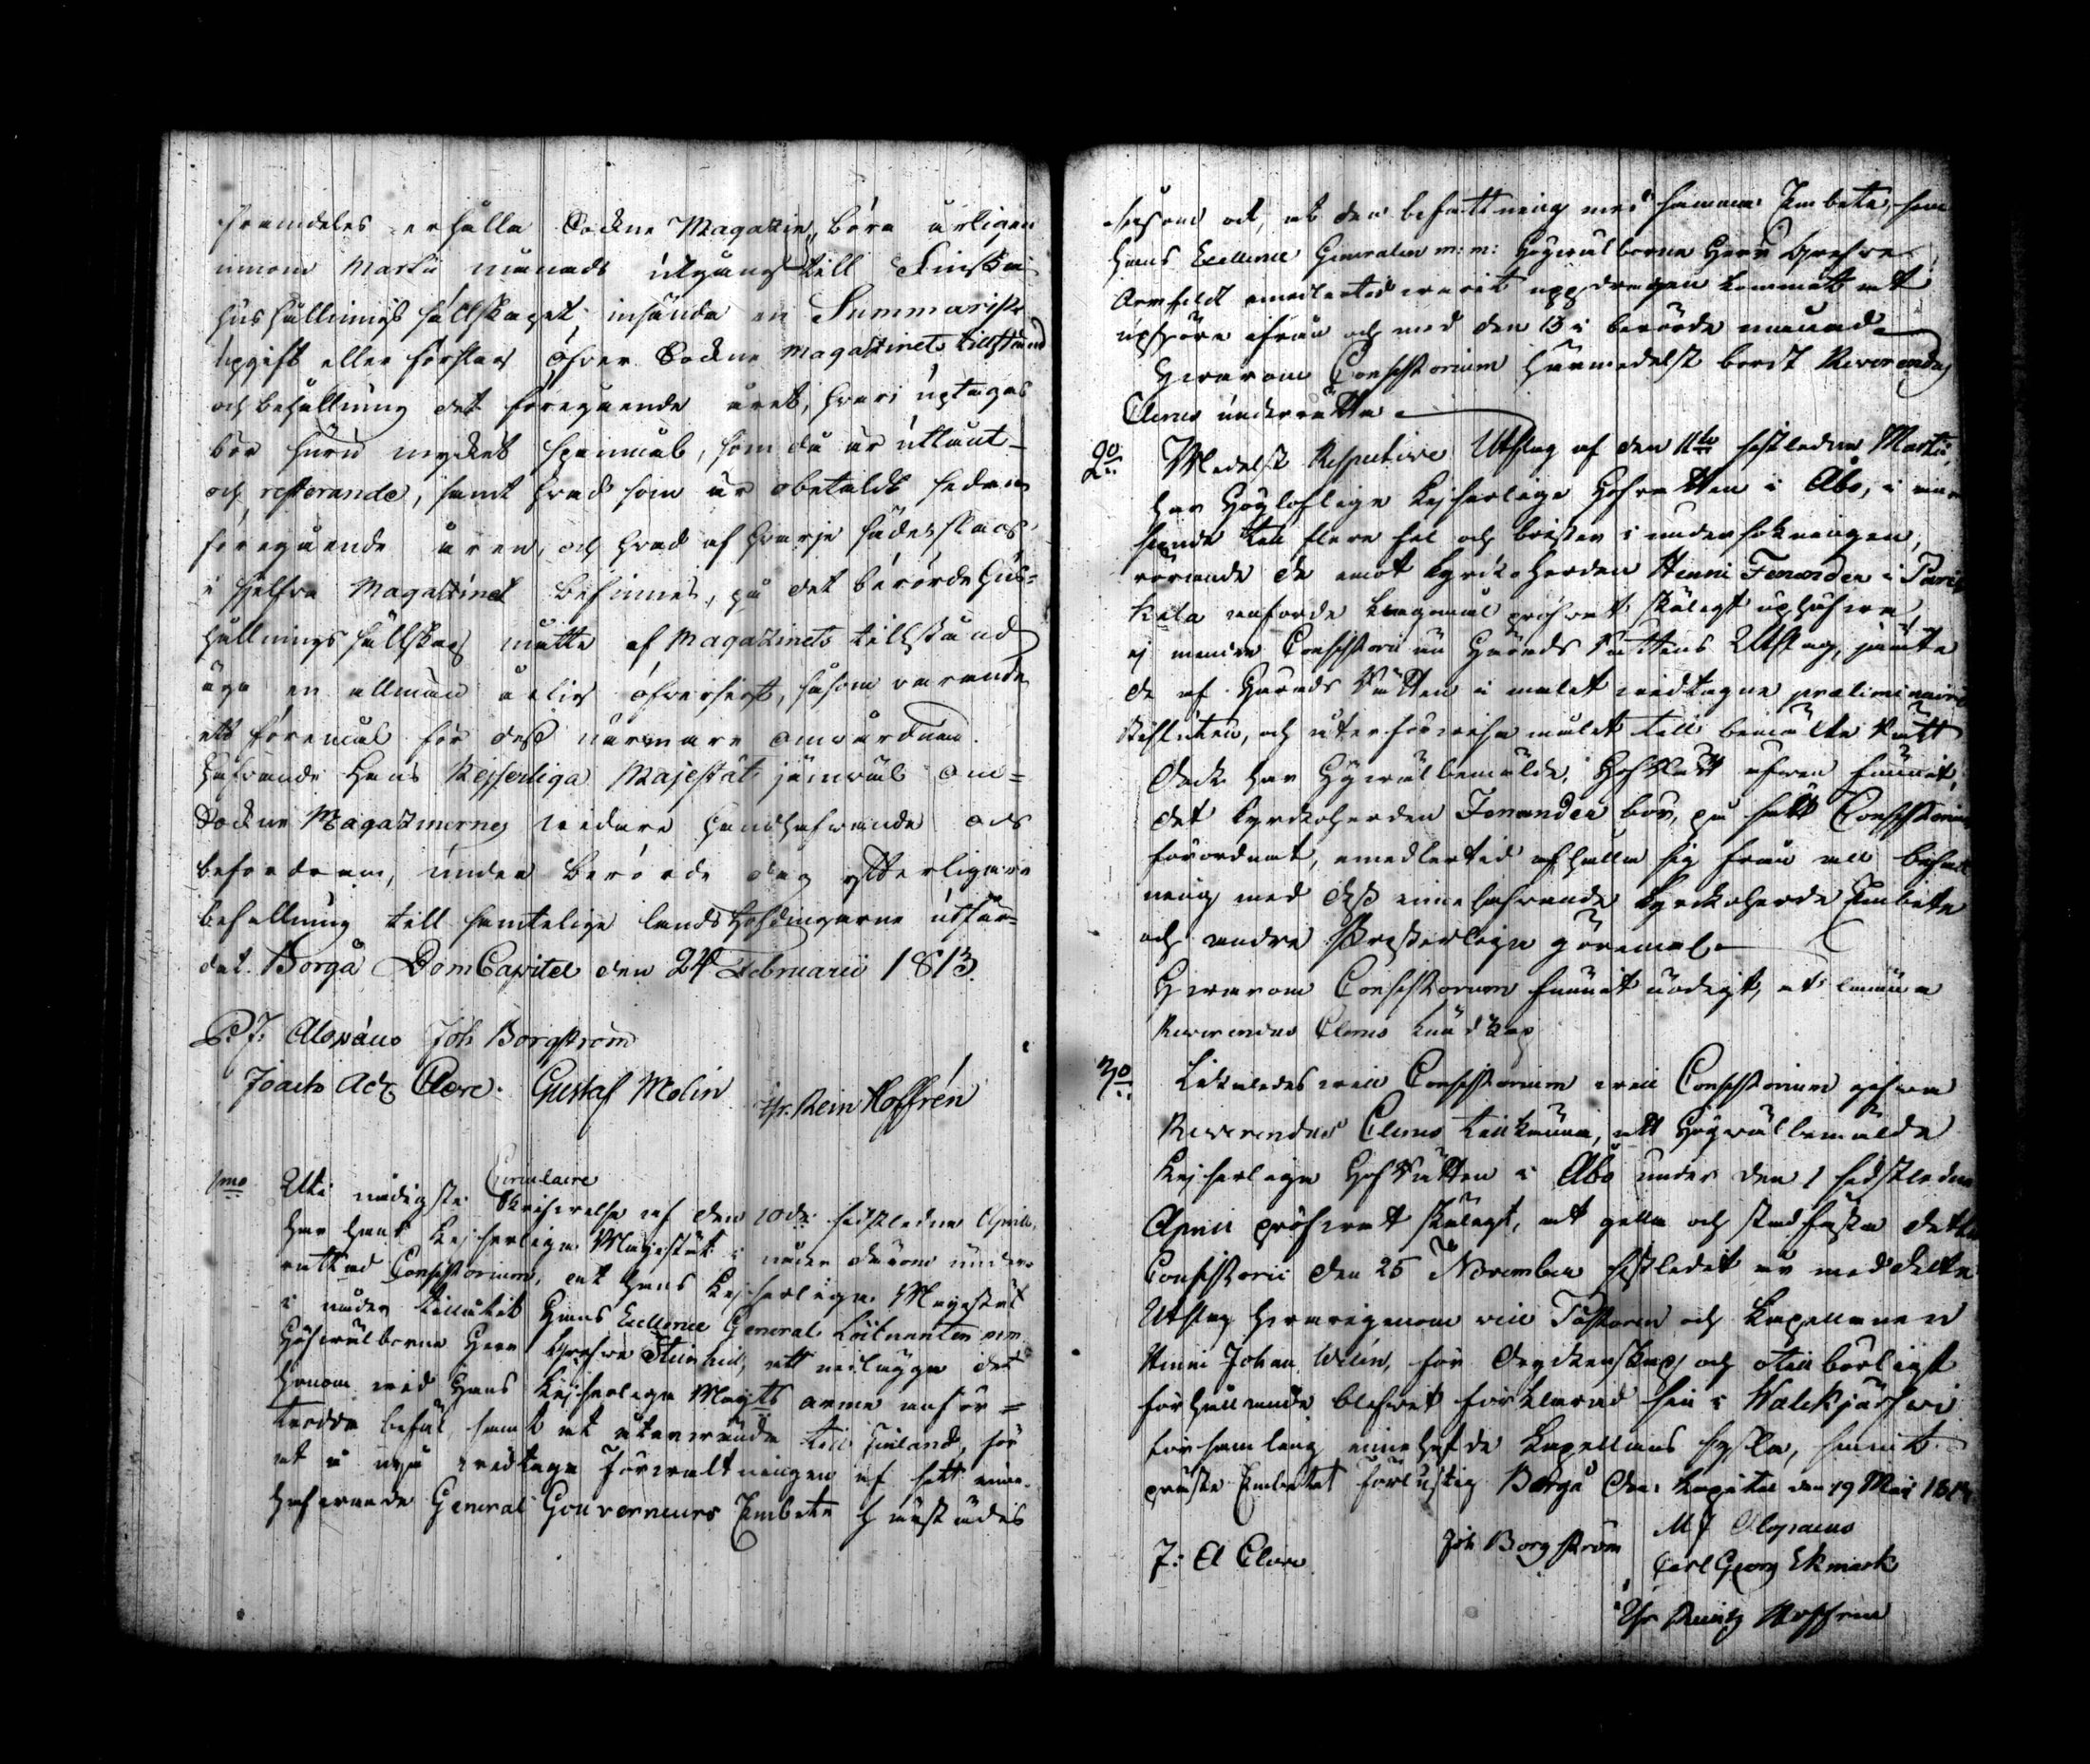 framdeles erhålla Sockne Magazin, böra årligen
innom Martii månads utgång till Finska
hushållnings sällskapet insända en Summarisk
upgift eller förslag öfver Sockne magazinets tillstånd
och behållning det föregående året, hvari uptagas
bör huru mycket spanmål, som då är utlånt
och resterande, samt hvad som är obetaldt sedan
föregående åren, och hvad af hvarje sädesslag
i sjelfva Magazinet befinnes, på det berörde Hus=
hållnings sällskap måtte af Magazinets tillstånd
äga en allmän årlig öfversigt, såsom varande
ett föremål för dess närmare omvårdnad.
Hafvande Hans Kejserliga Majestät jämväl om=
Sockne Magazinernes vidare handhafvande och
befordran, under berörde dag ytterligare
befallning till samtelige landshöfdingarne utfär=
dat. Borgå DomCapitel den 24 Februarii 1813.
Alopæus Joh Borgström
Joach Adr Clere. Gustaf Molin
Rein Hoffrén
Circulaire
1mo Uti nådigste Skrifvelse af den 10de sistledne April,
har Hans Kejserliga Majestät i nåder därom under=
rättad Consistorium, att Hans Kejserliga Majestät
i nåder tillåtit Hans Excellence General Löitnanten m.m.
Högvälborne Herr Grefve Steinheil, att nedlägga det
honom vid Hans Kejserliga Maj:ts arme anför=
trodde befäl samt at återvända till Finland, för
at å nyo vidtaga förvaltningen af sitt inne=
hafvande General Gouverneurs Embete härstädes
såsom och, at den befattning med samma Embete, som
Hans Excellence Generalen m: m: Högvälborne Herr Grefve
Armfeldt emedlertid varit uppdragen kommit att
uphöra ifrån och med den 13 i berörde månad.
Hvarom Consistorium härmedelst bordt Reverendus
Clerus underrätta.
2o Medelst Respective Utslag af den 11te sistledne Martii,
har Högloflige Kejserlige Hofrätten i Åbo, i an=
seende till flere fel och brister i undersökningen,
rörande de emot Kyrkoherden Henric Fonander i Parik=
kala anförde klagomål pröfvat skäligt uphäfva
ej mindre Consistorii än Härads Rättens Utslag, jämte
de af Härads Rätten i målet vidtagne præliminaire
besluten, och återförvisa målet till bemälte Rätt
Dock har Högvälbemälde Hof Rätt äfven funnit,
det Kyrkoherden Fonander bör, på sätt Consistorium
förordnat, emedlertid afhålla sig från all befatt
ning med dess innehafvande Kyrkoherde Embete
och andre Presterliga göremål.
Hvarom Consistorium funnit nödigt, at lämna
Reverendus Clerus kundskap
3o Likaledes vill Consistorium vill Consistorium gifva
Reverendus Clerus tillkänna, att Högvälbemälde
Kejserliga Hof Rätten i Åbo under den 1 sidstledne
April pröfvat skäligt, at gilla och stadfästa detta
Consistorii den 25 November sistledit år meddelte
Utslag hvarigenom vice Pastorn och Kapellanen
Henric Johan Welin, för dryckenskap och otillbörligt
förhållande blifvit förklarad sin i Walkjärfvi
församling innehafde Kapellans sysla, samt
präste Embetet förlustig Borgå Dom Kapitel den 19 Maji 1813
M J Alopaeus
J: A Clere Joh Borgström
Carl Georg Ekmark
Hoffren